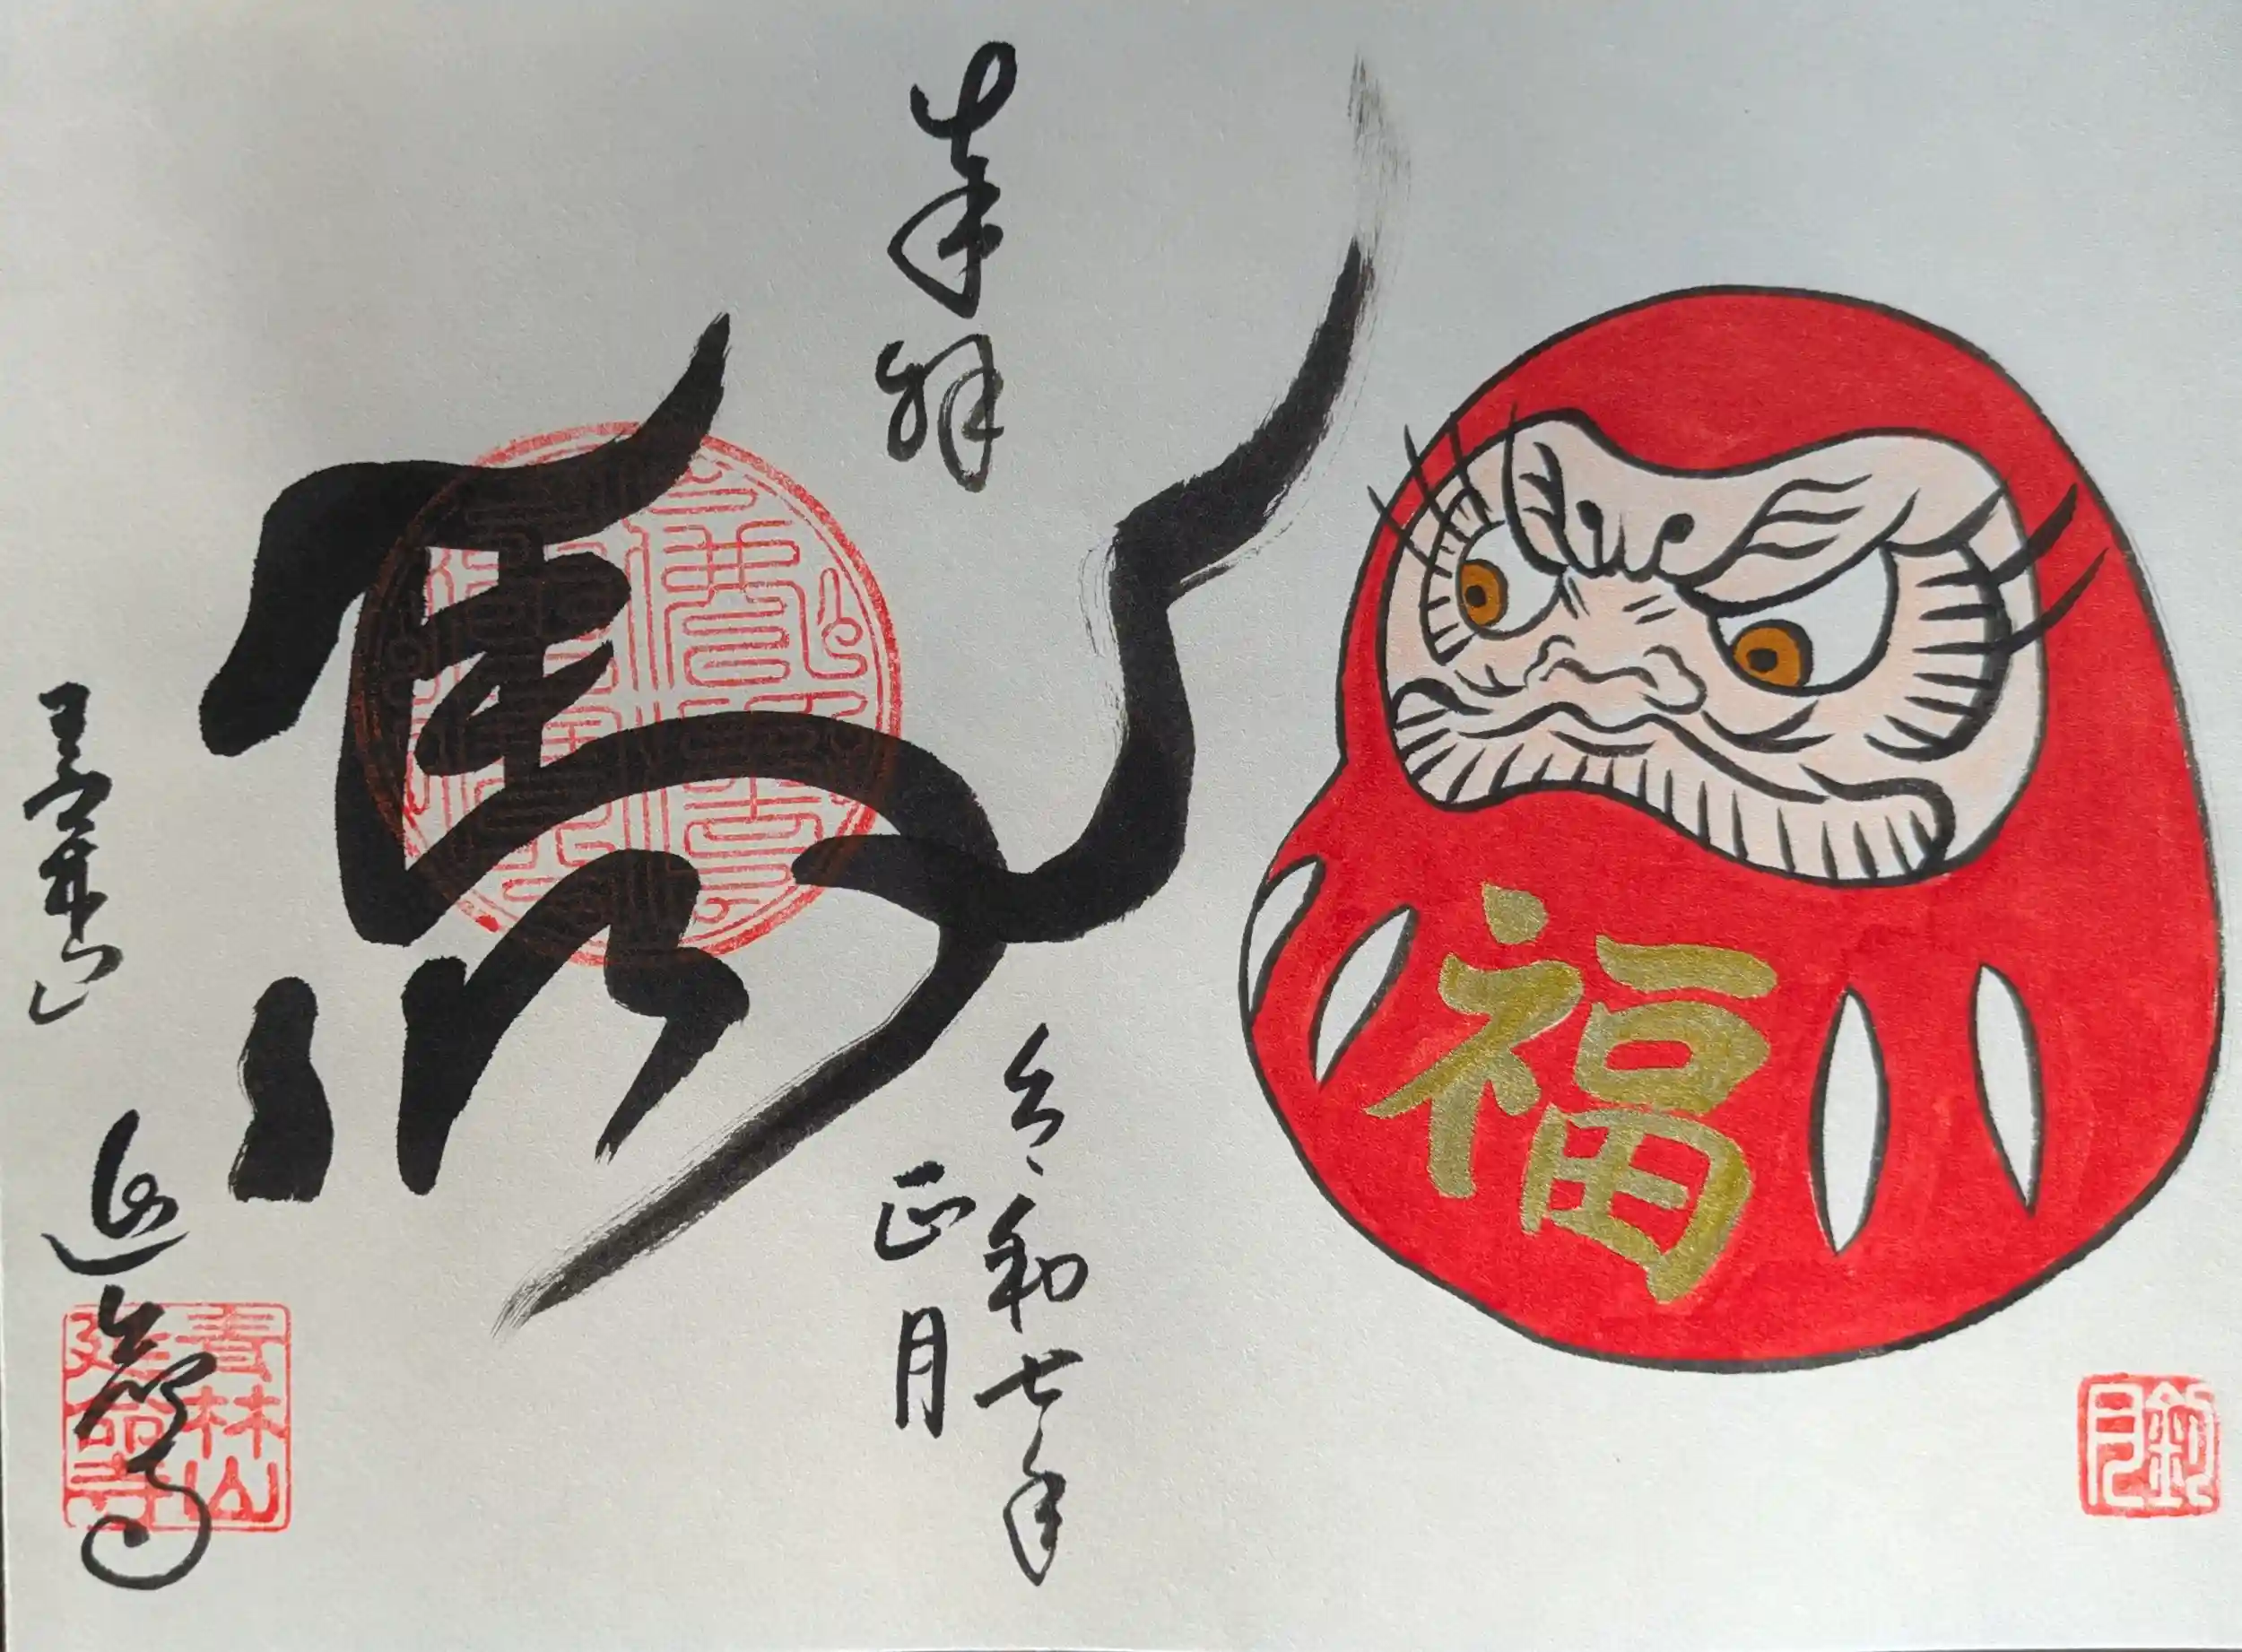 福
奉拝
令和七年
正月
青林山 延命寺
青林山
延命寺